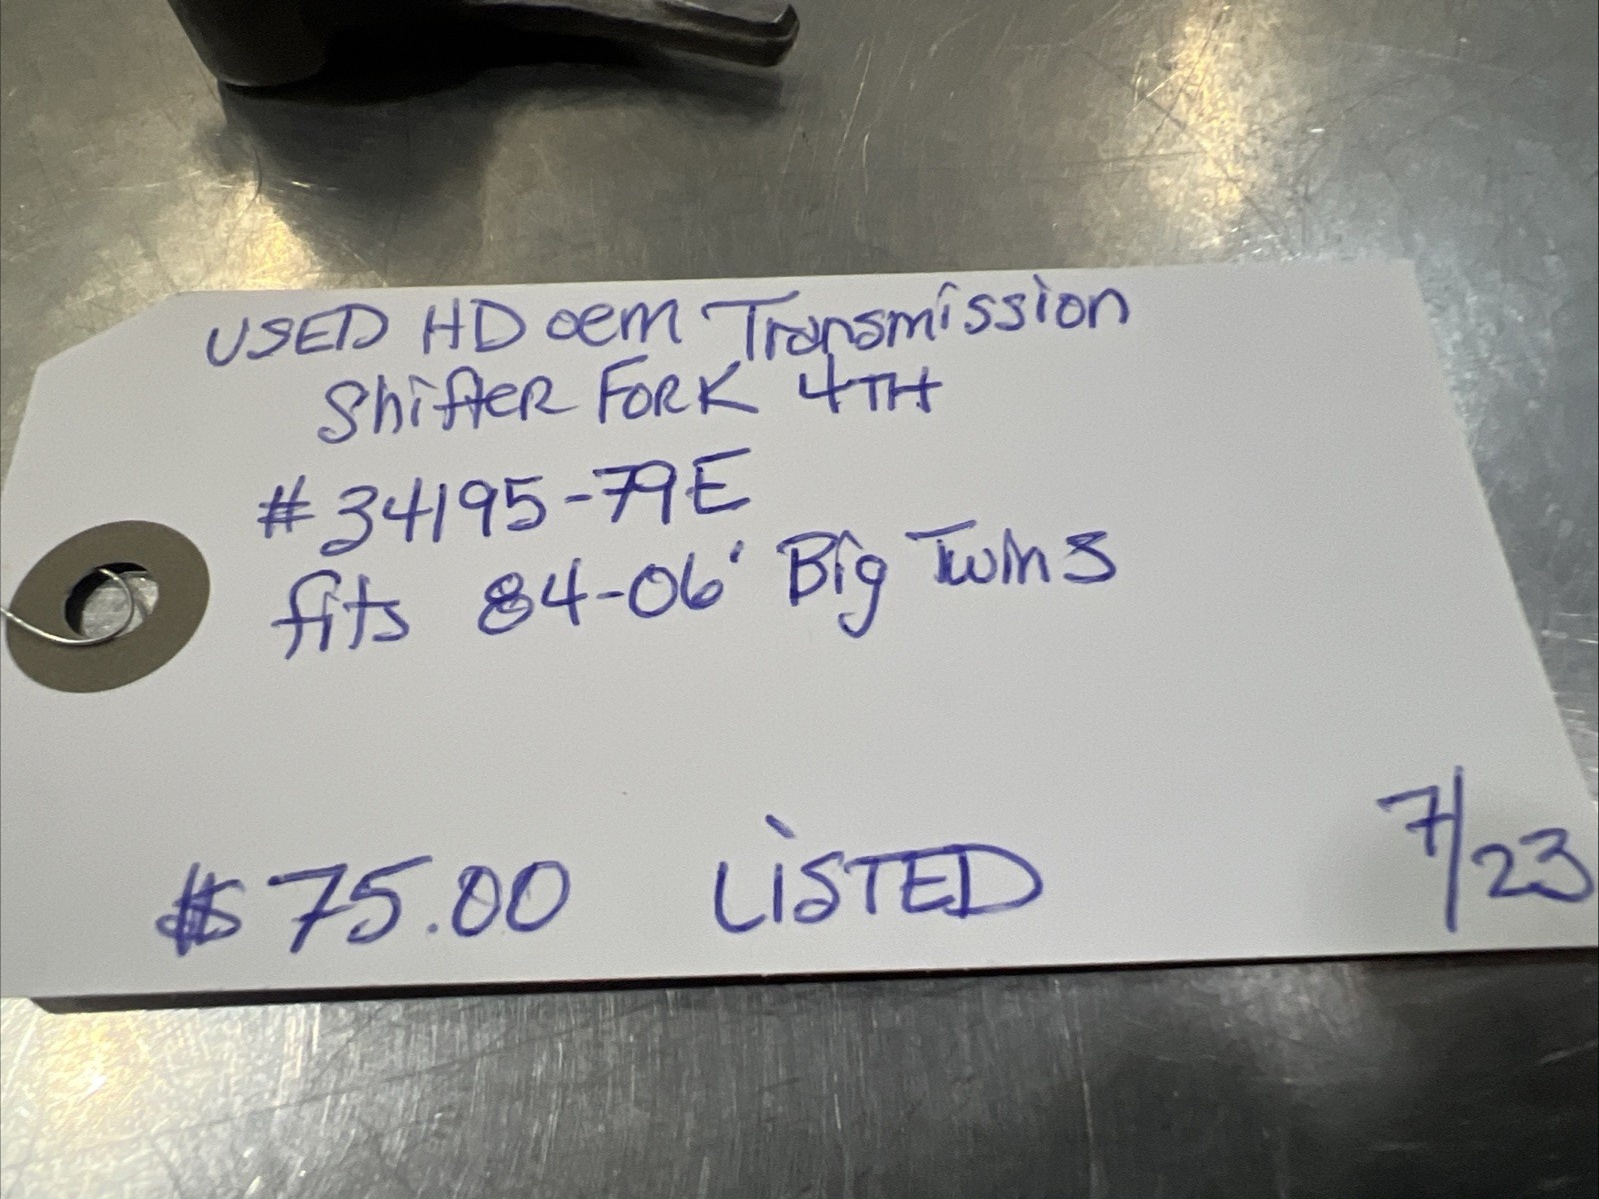 USED HD oem Transmission
Shifter FORK 4TH
#34195-79E
fits 84-06' Big Twins
$75.00 LiSTED 7/23